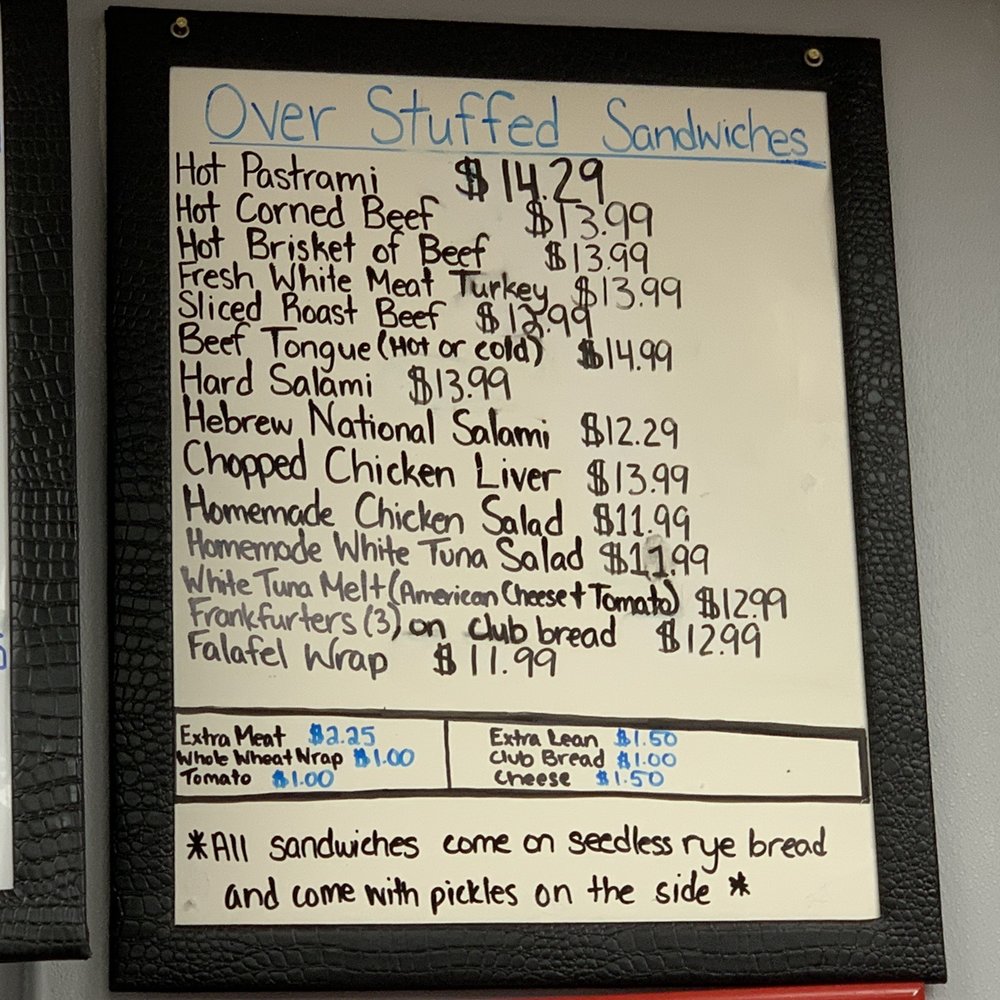 Over Stuffed Sandwiches
Hot Pastrami $14.29
Hot Corned Beef $13.99
Hot Brisket of Beef $13.99
Fresh White Meat Turkey $13.99
Sliced Roast Beef
Beef Tongue (Hot or cold) $14.99
Hard Salami $13.99
Hebrew National Salami $12.29
Chopped Chicken Liver $13.99
Homemade Chicken Salad $11.99
Homemade White Tuna Salad $11.99
White Tuna Melt (American Cheese + Tomato) $12.99
Frankfurters (3) on club bread $12.99
Falafel Wrap $11.99
Extra Meat $2.25
Whole Wheat Wrap $1.00
Tomato $1.00
Extra Lean $1.50
Club Bread $1.00
Cheese $1.50
*All sandwiches come on seedless rye bread
and come with pickles on the side *